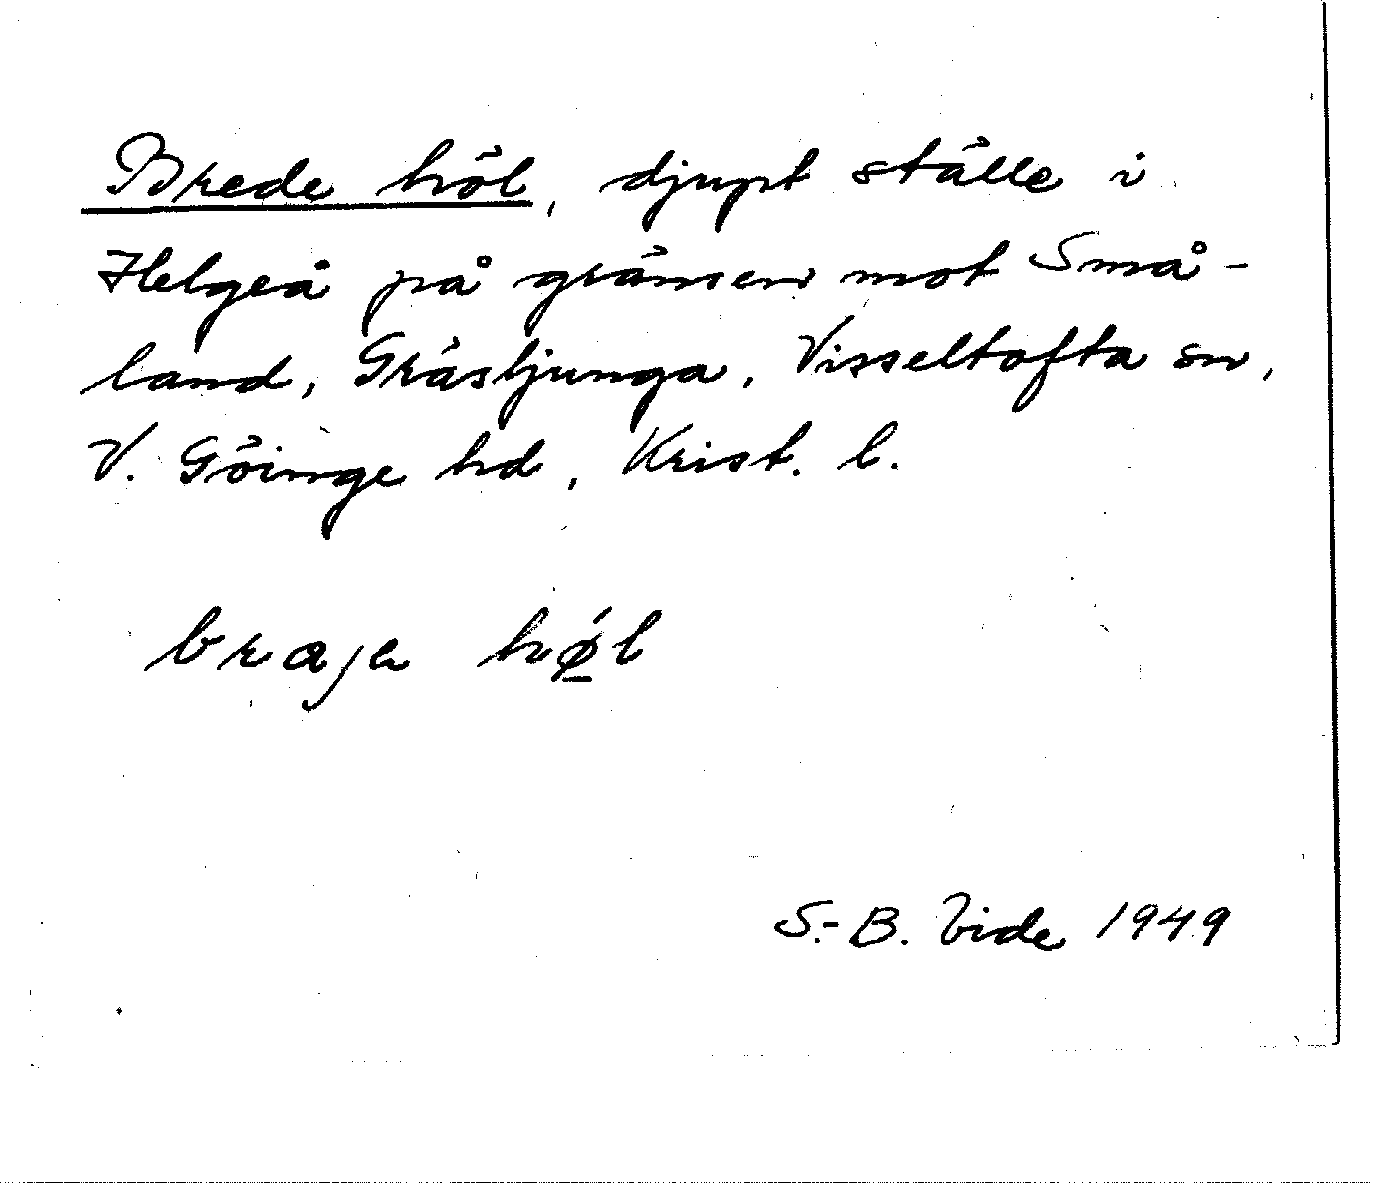 Brede höl, djupt ställe i
Helgeå på gränsen mot Små-
land, Gräsljunga, Visseltofta sn,
V. Göinge hd, Krist. l.
braJa hǿ̲l
S.-B. Vide 1949